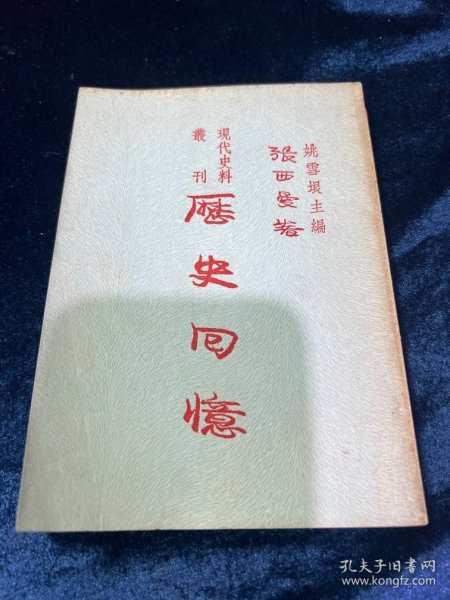 姚雪垠主編
張西曼著
現代史料
叢刊
歷史回憶
孔夫子旧书网
www.kongfz.com